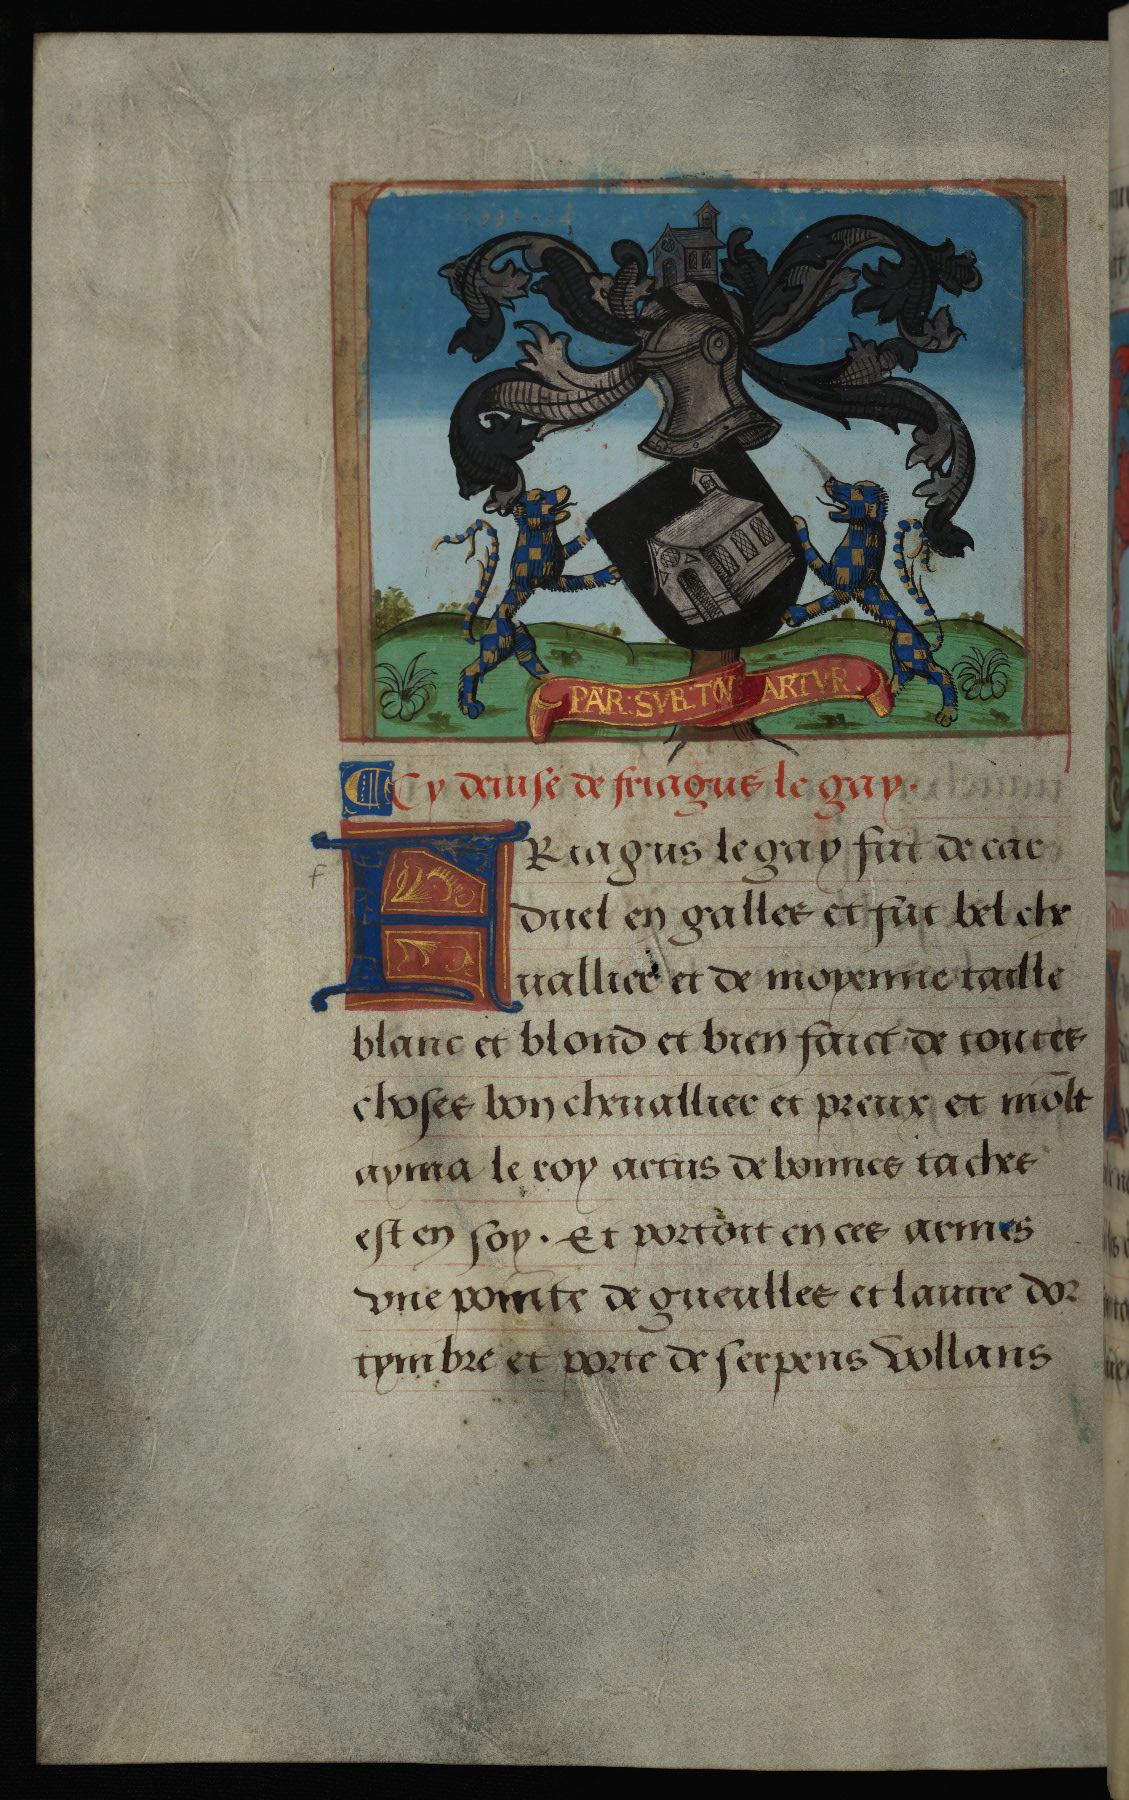 PAR: SVBTON ARTVR.
Cy deuise de friagus le gay.
f
RRiagus le gay fut de car
duel en galles et fut bel che
uallier et de moyenne taille
blanc et blond et bien faict de toutes
choses bon cheuallier et preux et mōlt
ayma le roy artus de bonnes taches
est en soy. Et portoit en ces armes
vne pointe de gueulles et lautre dor
tymbre et porte de serpens vollans